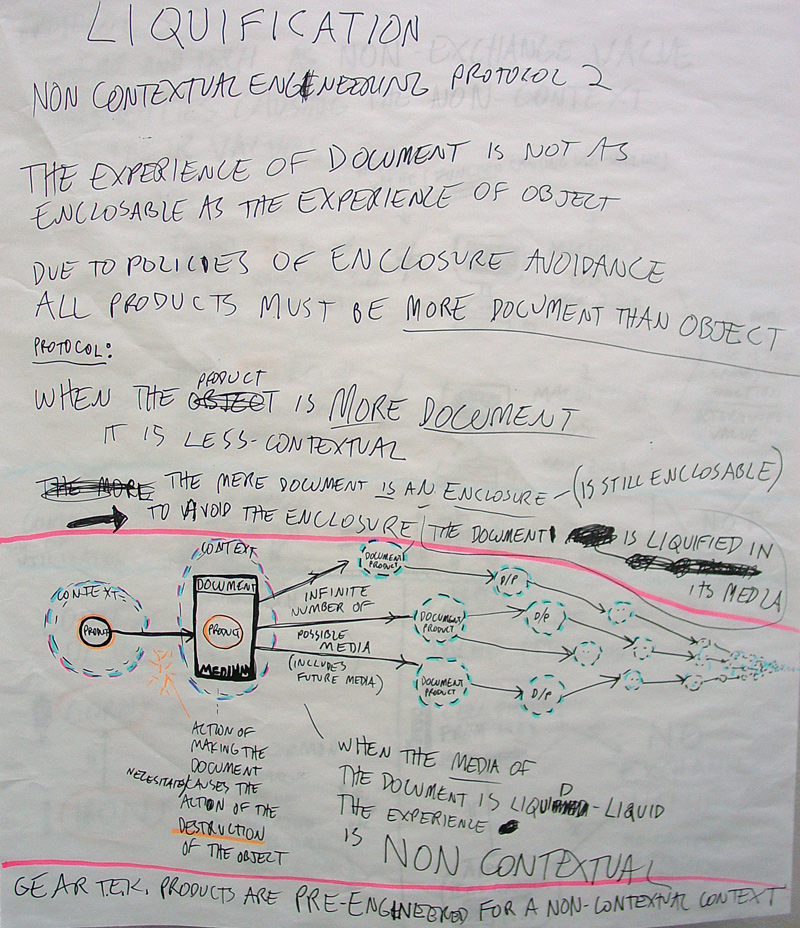 LIQUIFICATION
NON CONTEXTUAL ENGINEERING PROTOCOL 2
THE EXPERIENCE OF DOCUMENT IS NOT AS
ENCLOSABLE AS THE EXPERIENCE OF OBJECT
DUE TO POLICIES OF ENCLOSURE AVOIDANCE
ALL PRODUCTS MUST BE MORE DOCUMENT THAN OBJECT
PROTOCOL:
PRODUCT
WHEN THE OBJECT IS MORE DOCUMENT
IT IS LESS-CONTEXTUAL
THE MORE THE MERE DOCUMENT IS AN ENCLOSURE - (IS STILL ENCLOSABLE)
TO AVOID THE ENCLOSURE
THE DOCUMENT IS LIQUIFIED IN
ITS MEDIA
CONTEXT
PRODUCT
CONTEXT
DOCUMENT
PRODUCT
MEDIUM
INFINITE
NUMBER OF
POSSIBLE
MEDIA
(INCLUDES
FUTURE MEDIA)
DOCUMENT
PRODUCT
D/P
DOCUMENT
PRODUCT
D/P
DOCUMENT
PRODUCT
D/P
ACTION OF
MAKING THE
DOCUMENT
NECESITATES/CAUSES THE
ACTION OF THE
DESTRUCTION
OF THE OBJECT
WHEN THE MEDIA OF
THE DOCUMENT IS LIQUID-LIQUID
THE EXPERIENCE
IS NON CONTEXTUAL
GEAR T.E.K. PRODUCTS ARE PRE-ENGINEERED FOR A NON-CONTEXTUAL CONTEXT